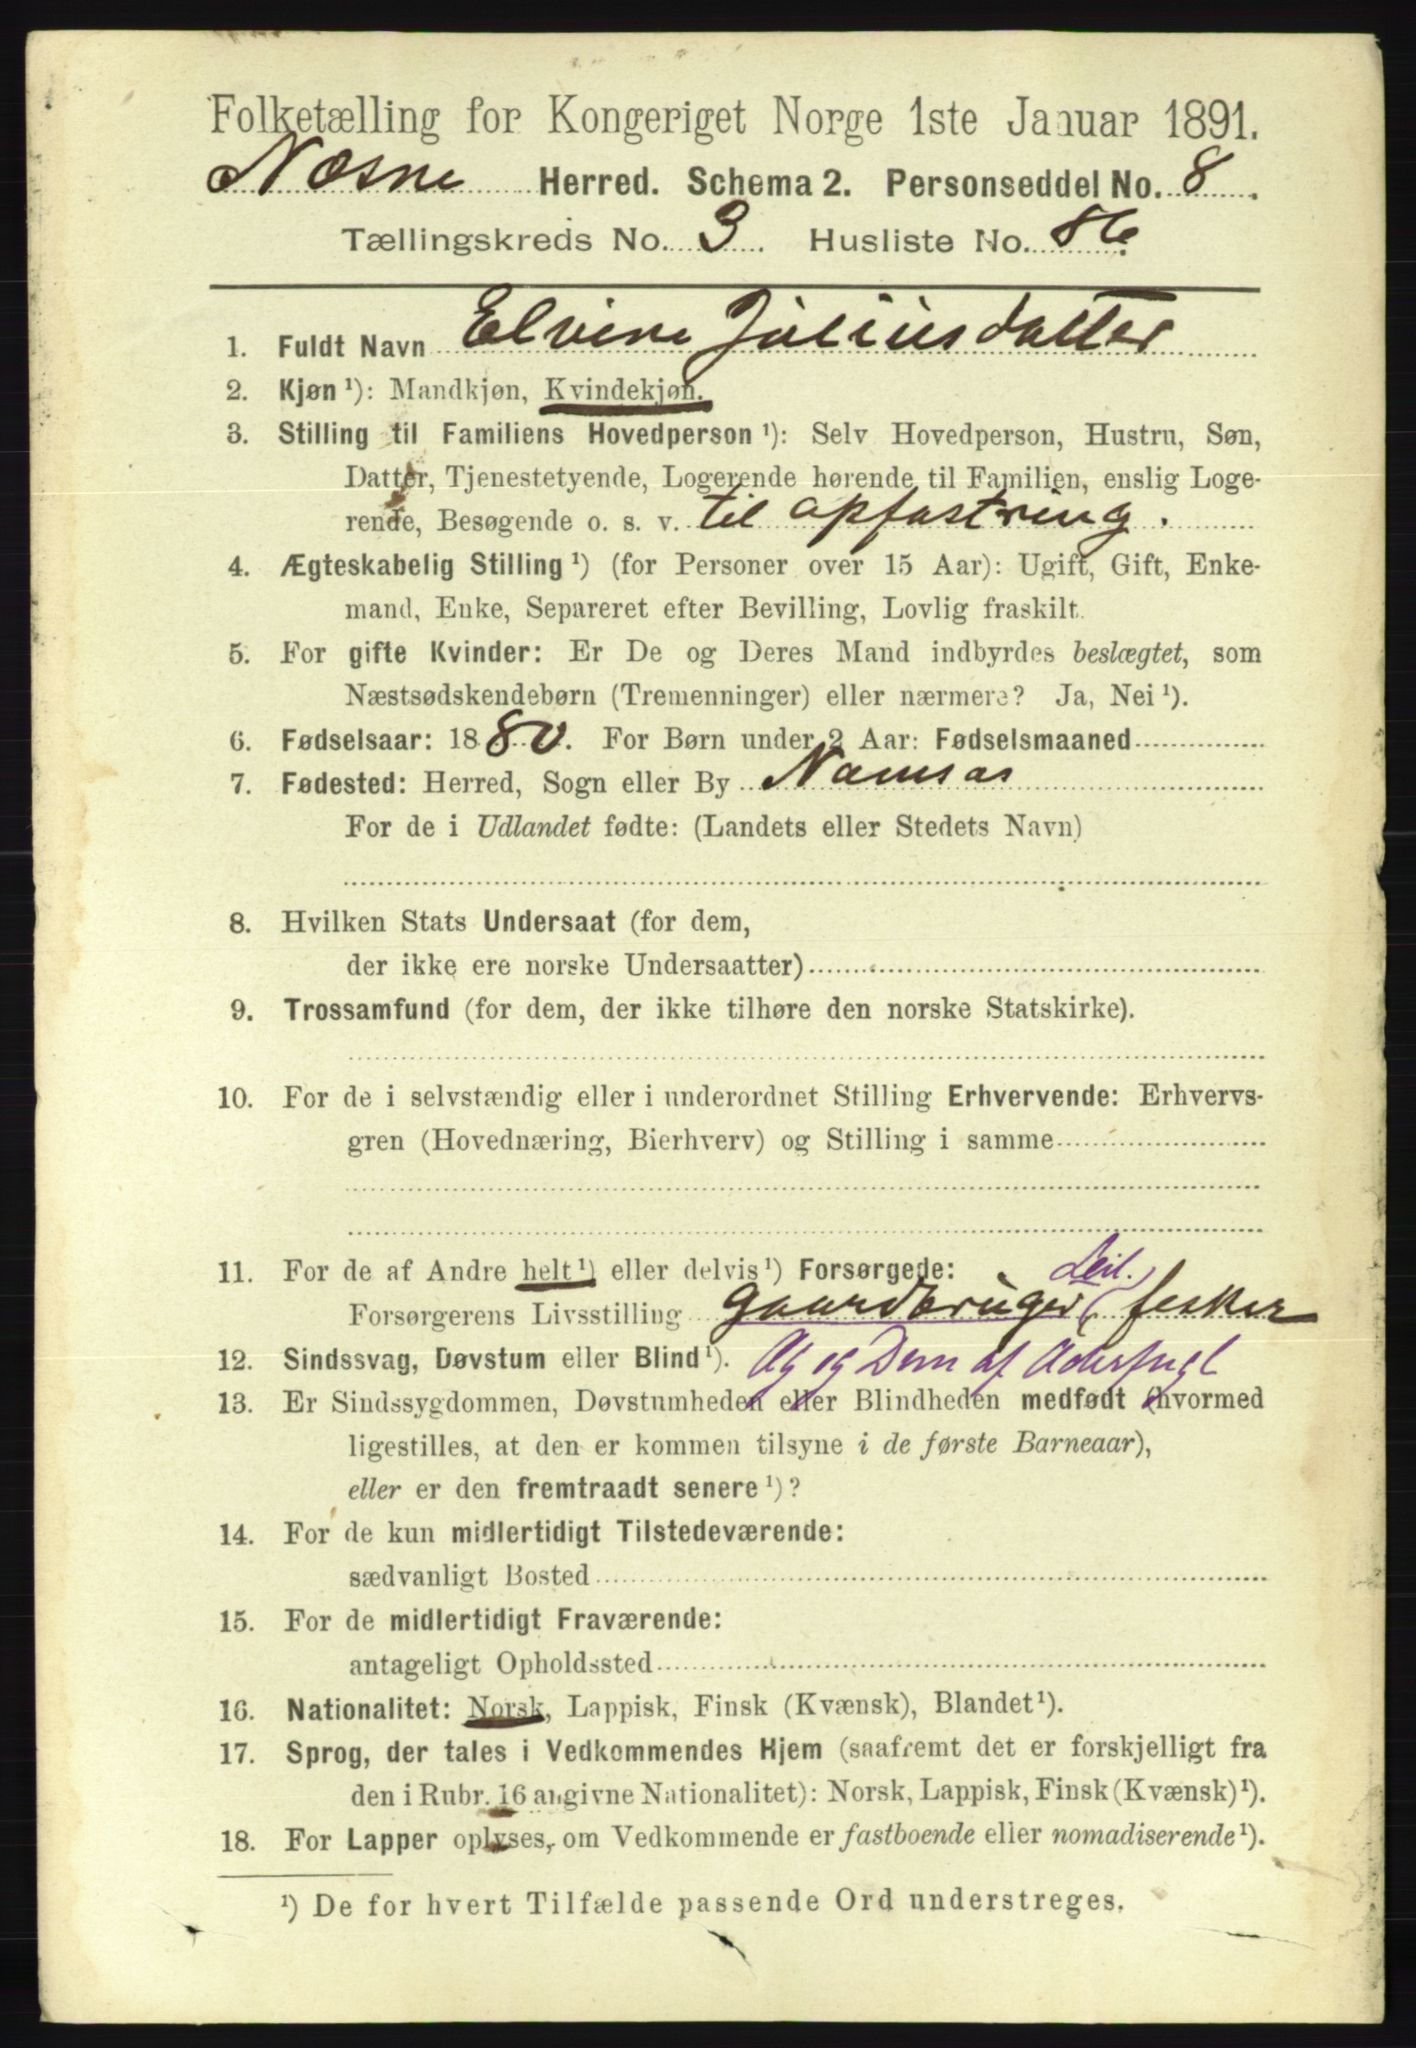 Folketælling for Kongeriget Norge 1ste Januar 1891.
Næsne Herred. Schema 2. Personseddel No. 8.
Tællingskreds No. 3. Husliste No. 86.
1. Fuldt Navn Elvine Juliusdatter
2. Kjøn ¹): Mandkjøn, Kvindekjøn.
3. Stilling til Familiens Hovedperson ¹): Selv Hovedperson, Hustru, Søn,
Datter, Tjenestetyende, Logerende hørende til Familien, enslig Loge-
rende, Besøgende o. s. v. til opfostring.
4. Ægteskabelig Stilling ¹) (for Personer over 15 Aar): Ugift, Gift, Enke-
mand, Enke, Separeret efter Bevilling, Lovlig fraskilt.
5. For gifte Kvinder: Er De og Deres Mand indbyrdes beslægtet, som
Næstsødskendebørn (Tremenninger) eller nærmere? Ja, Nei ¹).
6. Fødselsaar: 1880. For Børn under 2 Aar: Fødselsmaaned
7. Fødested: Herred, Sogn eller By Namsos
For de i Udlandet fødte: (Landets eller Stedets Navn)
8. Hvilken Stats Undersaat (for dem,
der ikke ere norske Undersaatter)
9. Trossamfund (for dem, der ikke tilhøre den norske Statskirke).
10. For de i selvstændig eller i underordnet Stilling Erhvervende: Erhvervs-
gren (Hovednæring, Bierhverv) og Stilling i samme
11. For de af Andre helt ¹) eller delvis ¹) Forsørgede: Leil.
Forsørgerens Livsstilling gaardbruger, fesker
12. Sindssvag, Døvstum eller Blind ¹). Æg og Dun af Ederfugl
13. Er Sindssygdommen, Døvstumheden eller Blindheden medfødt (hvormed
ligestilles, at den er kommen tilsyne i de første Barneaar),
eller er den fremtraadt senere ¹)?
14. For de kun midlertidigt Tilstedeværende:
sædvanligt Bosted
15. For de midlertidigt Fraværende:
antageligt Opholdssted
16. Nationalitet: Norsk, Lappisk, Finsk (Kvænsk), Blandet ¹).
17. Sprog, der tales i Vedkommendes Hjem (saafremt det er forskjelligt fra
den i Rubr. 16 angivne Nationalitet): Norsk, Lappisk, Finsk (Kvænsk) ¹).
18. For Lapper oplyses, om Vedkommende er fastboende eller nomadiserende ¹).
¹) De for hvert Tilfælde passende Ord understreges.